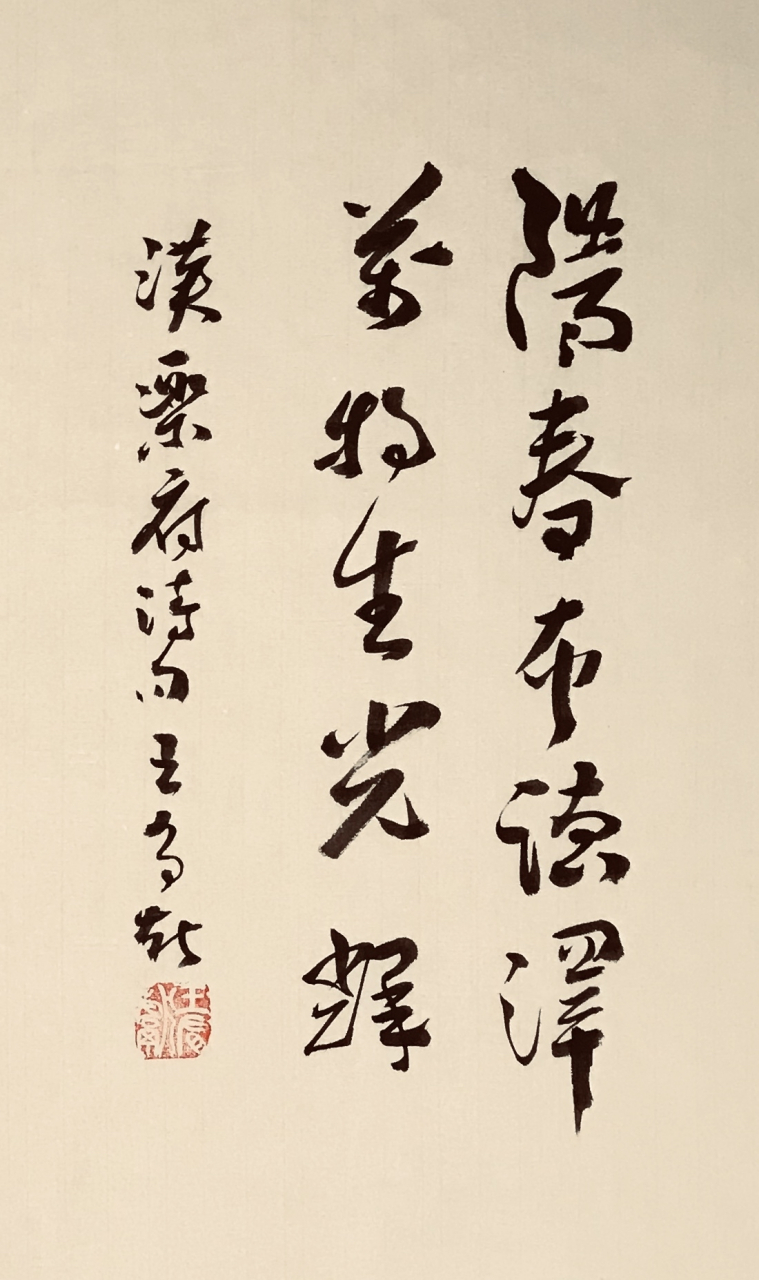 陽春布德澤
萬物生光輝
漢樂府詩句